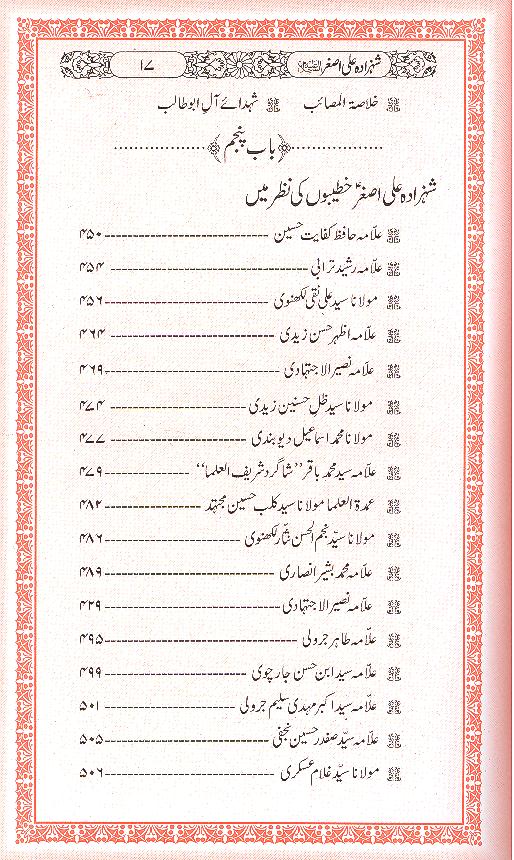 شہزادہ علی اصغر ۱۷
خلاصۃ المصائب شہدائے آلِ ابوطالب
باب پنجم
شہزادہ علی اصغرؑ خطیبوں کی نظر میں
علاّمہ حافظ کفایت حسین ۴۵۰
علاّمہ رشید ترابی ۴۵۴
مولانا سید علی نقی لکھنوی ۴۵۶
علاّمہ اظہر حسن زیدی ۴۶۴
علاّمہ نصیر الاجتہادی ۴۶۹
مولانا سید ظلِ حسنین زیدی ۴۷۴
مولانا محمد اسماعیل دیوبندی ۴۷۷
علاّمہ سید محمد باقر ’’شاگرد شریف العلما‘‘ ۴۷۹
عمدۃ العلما مولانا سید کلب حسین مجتہد ۴۸۲
مولانا سیّد نجم الحسن نثّار لکھنوی ۴۸۶
علاّمہ محمد بشیر انصاری ۴۸۹
علاّمہ نصیر الاجتہادی ۴۲۹
علاّمہ طاہر جرولی ۴۹۵
علاّمہ سید ابن حسن جارچوی ۴۹۹
علاّمہ سید اکبر مہدی سلیم جرولی ۵۰۱
علاّمہ سیّد صفدر حسین نجفی ۵۰۵
مولانا سیّد غلام عسکری ۵۰۶